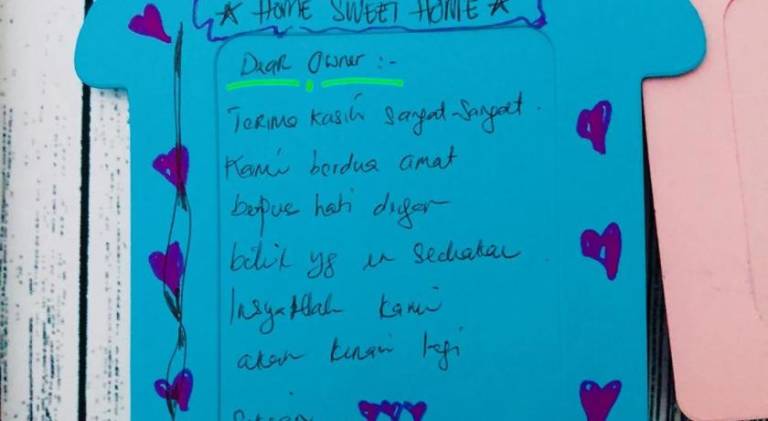 ★ HOME SWEET HOME ★
Dear Owner :-
Terima kasih sangat-sangat.
Kami berdua amat
berpuas hati dgn
bilik yg
Insyaallah kami
akan